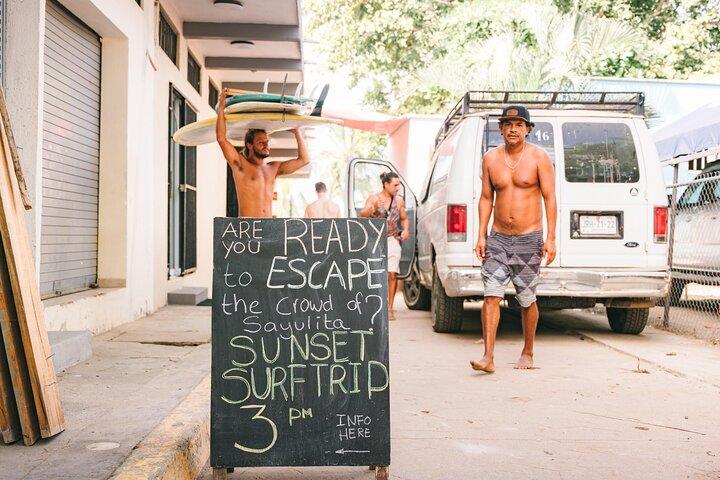 ARE YOU READY
to ESCAPE
the Crowd of
Sayulita?
SUNSET
SURF TRIP
3 PM
INFO HERE
16